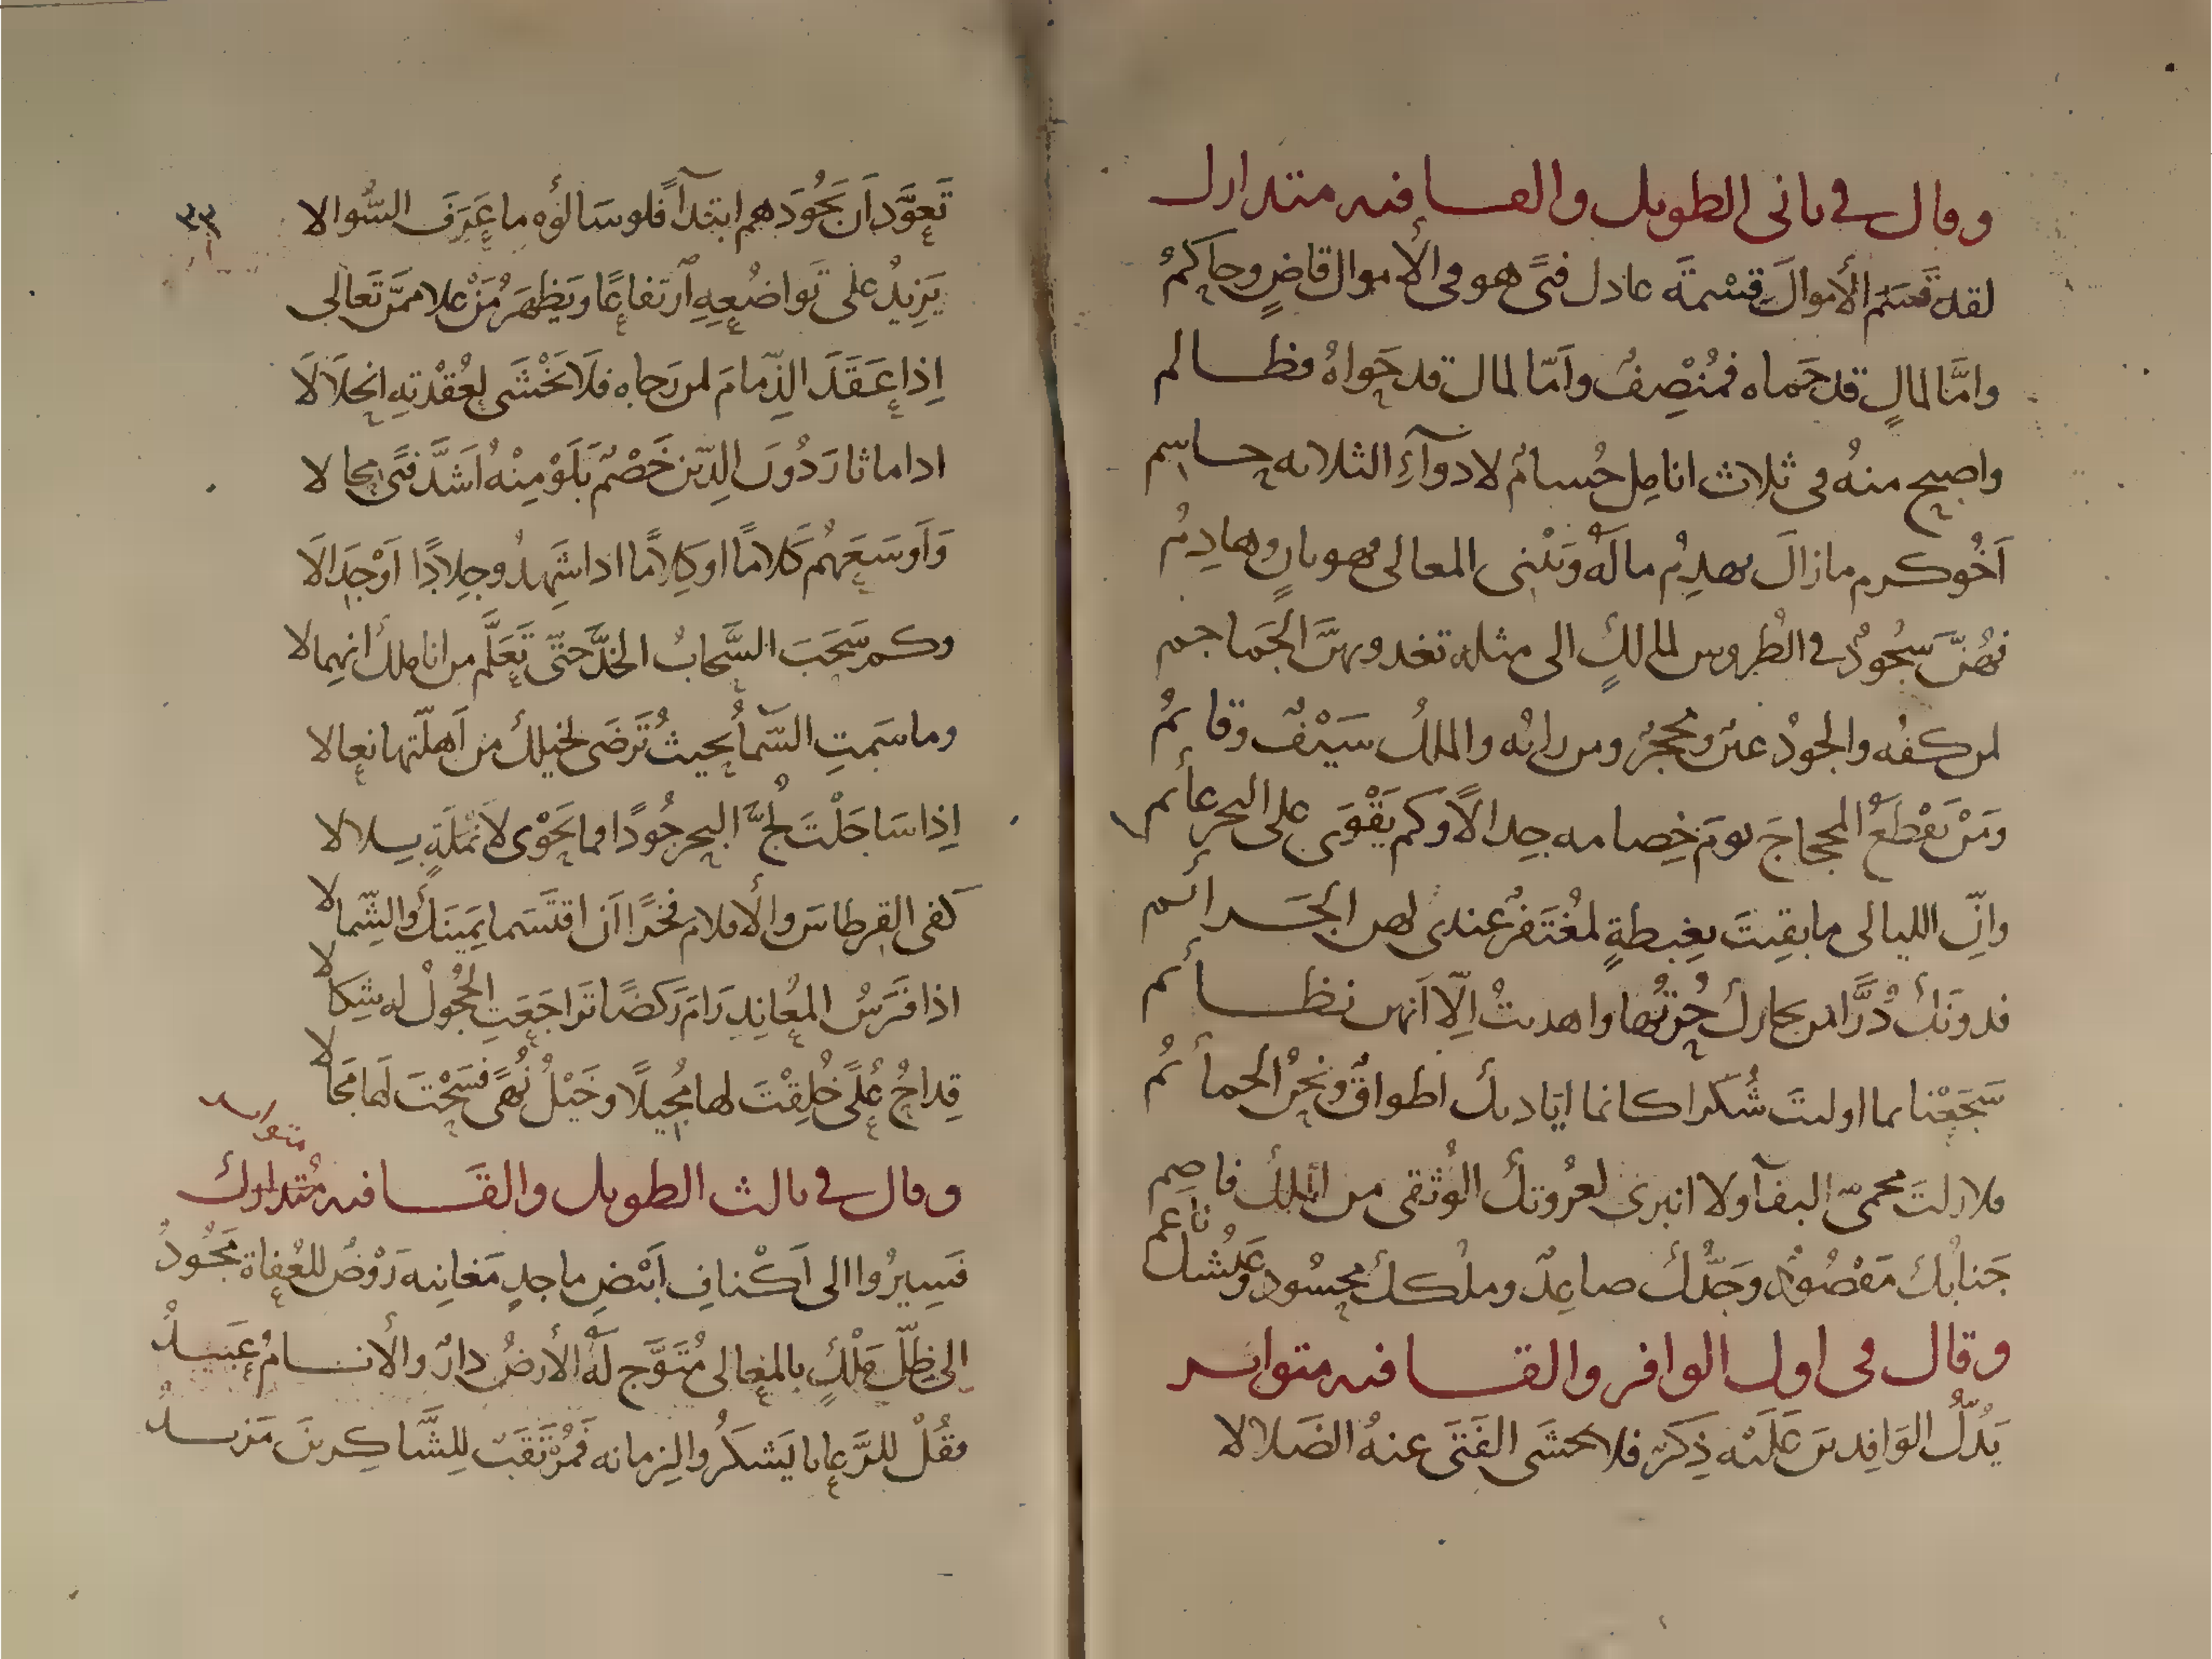 وقال في ثاني الطويل والقافيه متدارك
لقد قَسَمَ الأموالَ قِسْمَةَ عادل فتًى هو في الأموال قاضٍ وحاكمُ
وامَّا لمالٍ قد حَماه فمُنْصِفٌ واَمّا لمال قد حَواهُ فظالم
واصبح منهُ في ثلاث اناملٍ حُسامٌ لادوآءِ الثلاثه حاسم
اَخُو كرم مازالَ يهدِمُ مالَهُ وَيَبْنى المعالى فهو بانٍ وهادِمُ
فهُنَّ سُجُودٌ في الطُروس لمالكٍ الى مثله تغدو بهنَّ الجَماجم
لمن كفُه والجودُ عينٌ ومحجرٌ ومن رايُه والملكُ سَيْفٌ وقائمُ
ومَنْ يَقْطَعُ الحجاجَ يومَ خِصامه جِدالاً وكم يَقْوَى على البحر عائم
وانّ الليالى ما بقِيتَ بغِبطةٍ لمُغتَفرٌ عندى لهن الجَرائم
فدونَكَ دُرًّا من بحارك حُزتُها واهديتُ اِلّا اَنهن نظائم
سَجَعْنا بما اوليتَ شُكرا كانما اَيَاديك اطواقٌ ونحنُ الحمائمُ
فلا زلتَ محمىّ البقآ ولا انبرى لعُروتكَ الوُثقى من الملك فاصِم
جَنابُكَ مَقصُودٌ وجَدُّكَ صاعِدٌ وملككَ محسُود وعَيْشك ناعم
وقال في اول الوافر والقافيه متواتر
يَدُلُّ الوَافِدينَ عَلَيْه ذِكرٌ فلا يخشَى الفَتَى عنهُ الضَلالا
٣٣
تَعوَّد اَن يَجُودَهم ابتدآً فلو سَالوُه ما عَرَفَ السُّوالا
يَزِيدُ على تَواضُعِهِ اِرتفاعًا ويَظهَرُ مَنْ علا ممَّن تَعالى
اِذا عَقَدَ الذِّمامَ لمن رَجاه فلَا تَخْشَى لِعُقْدَتهِ انحلَالَا
اذا ما ثارَ دُونَ الدِّين خَصْمٌ بَلَوْ مِنْهُ اَشَدَّ فتًى محالا
وَاَوسَعَهُم كَلامًا او كِلامًا اذا شَهِدُو جِلادًا اَوْ جِدالَا
وكم سَحَبَ السَّحابُ الخدَّ حتّى تَعَلَّم من اناملك انهمالا
وما سَمتِ السَّمآُ بحيثُ تَرضَى لخيلك من اَهلّتها نعالا
اِذا سَاجَلْتَ لُجَّ البحر جُودًا فما يَحْوْى لاَنمُلَةٍ بِلالا
كفى القرطاسَ والأقلام فخرًا اَن اقتَسَما يمَينَكَ والشّمالا
اذا فَرَسُ المعُانِدِ رَامَ رَكضًا تَراجَعَتِ الحُجُولُ له شِكالا
قِداحُ عُلًى خُلِقْتَ لها مُجيلًا وخَيْلُ نُهًى فسَحْتَ لَها مَجالا
وقال في ثالث الطويل والقافيه مُتدارك
متواتر
فَسِيرُوا الى اَكْنافِ اَبيْضِ ماجدٍ مَغانِيه رَوْضٌ للعُفاة مَجُودُ
اِلى ظِلّ مَلْكٍ بالمعالى مُتَوَّج لَهُ الأرضُ دارٌ والأنامُ عَبيدُ
فقُلْ للرَّعايا يَشكُرُوا لزِمانه فَمُرْتَقَبٌ لِلشَّاكِرينَ مَزيدُ